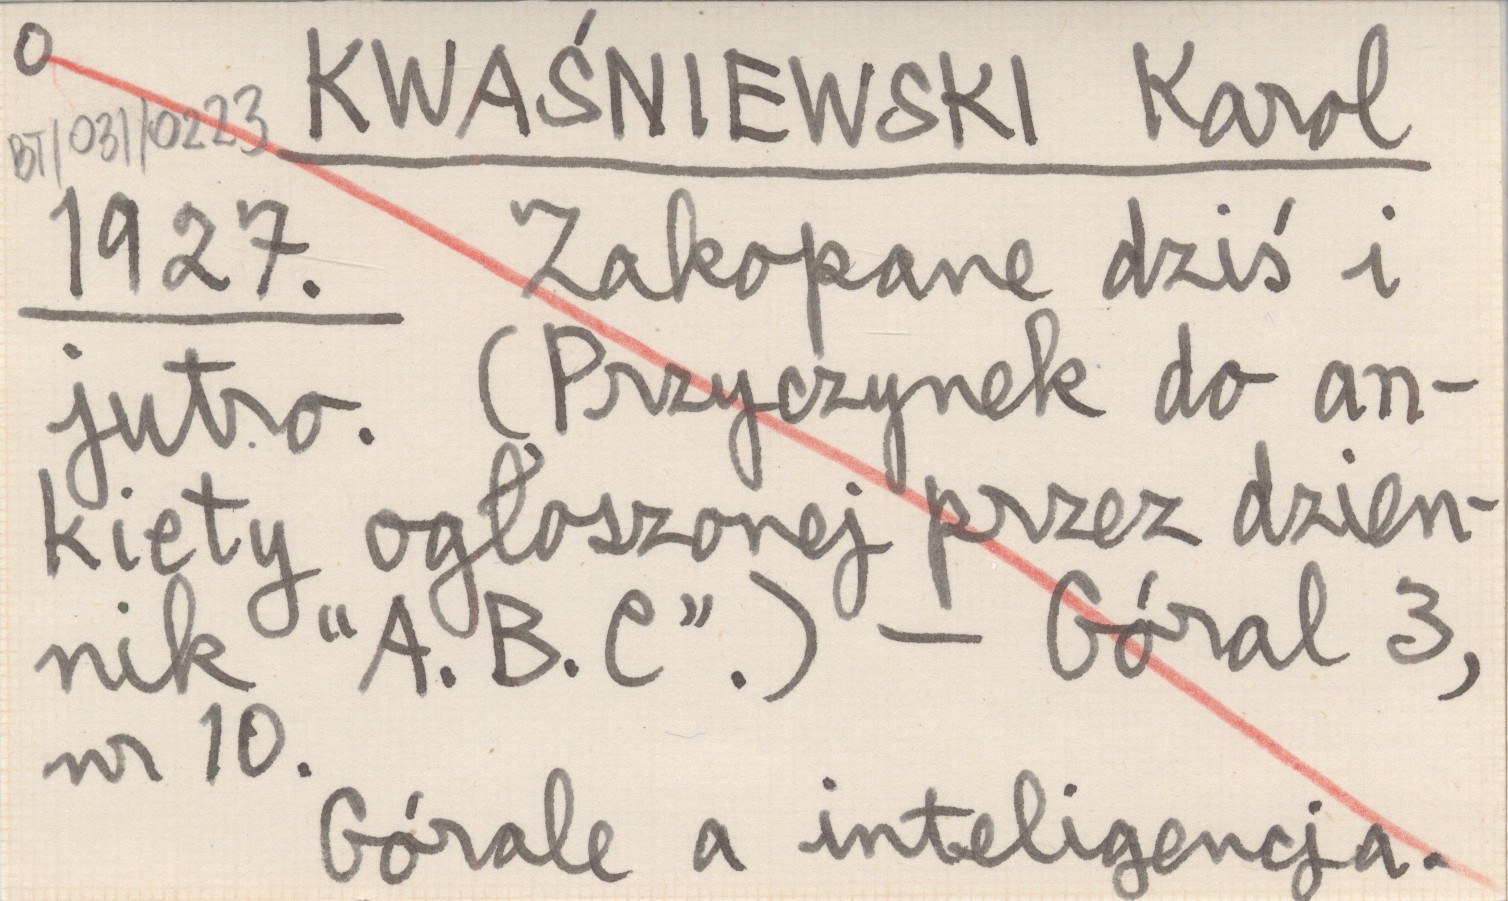 O KWAŚNIEWSKI Karol
BT/031/0223
1927. Zakopane dziś i
jutro. (Przyczynek do an-
kiety ogłoszonej przez dzien-
nik “A.B.C”.) — Góral 3,
nr 10.
Górale a inteligencja.